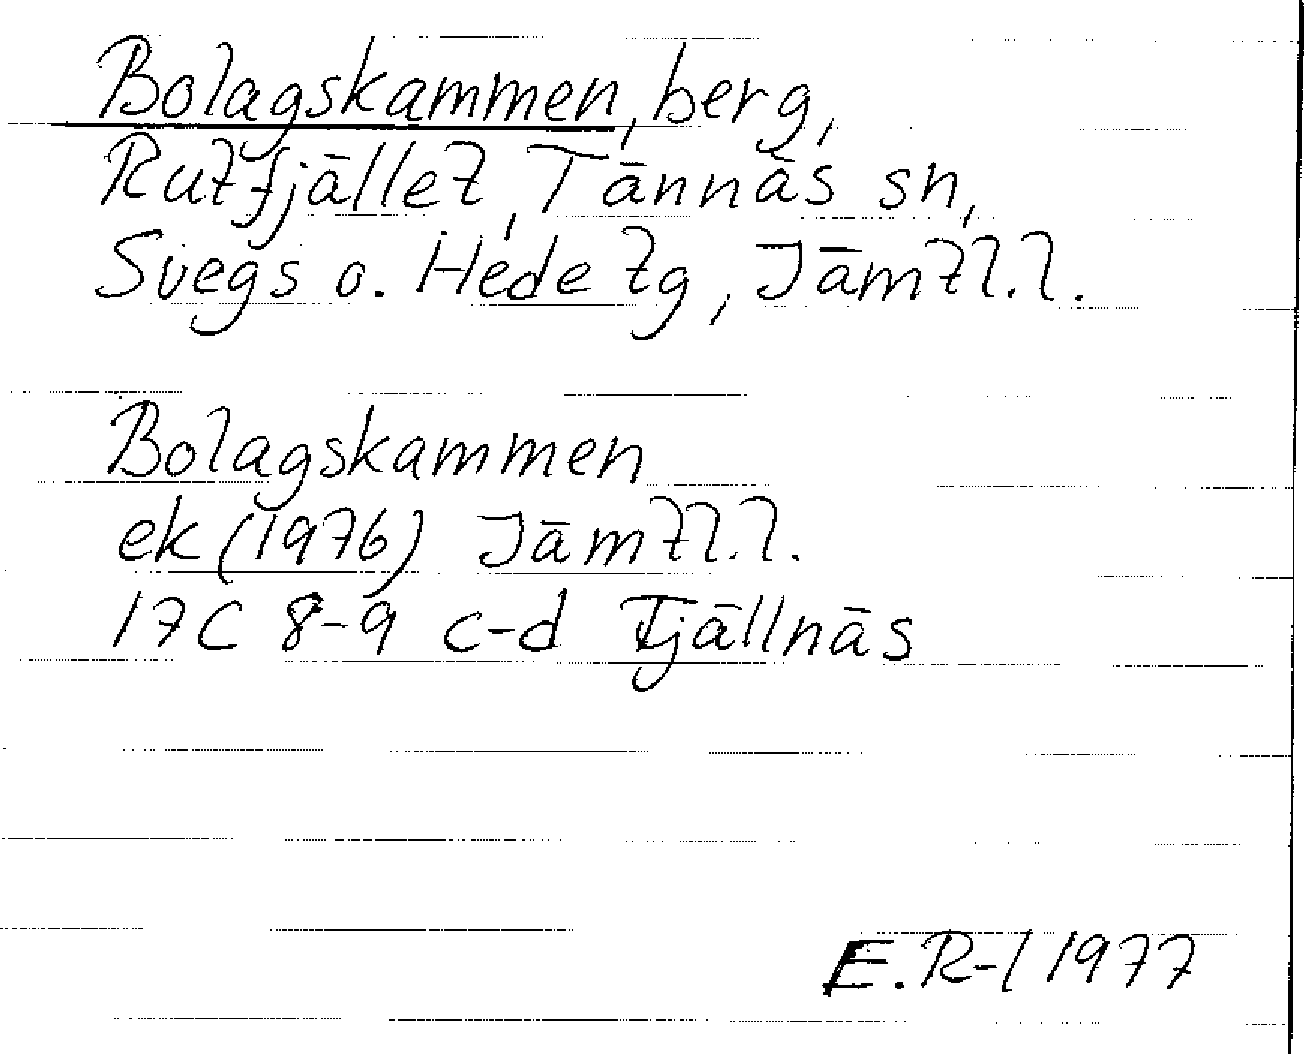 Bolagskammen, berg,
Rutfjället, Tännäs sn,
Svegs o. Hede tg, Jämtl.l.
Bolagskammen
ek (1976) Jämtl.l.
17C 8-9 c-d Fjällnäs
E.R-l 1977